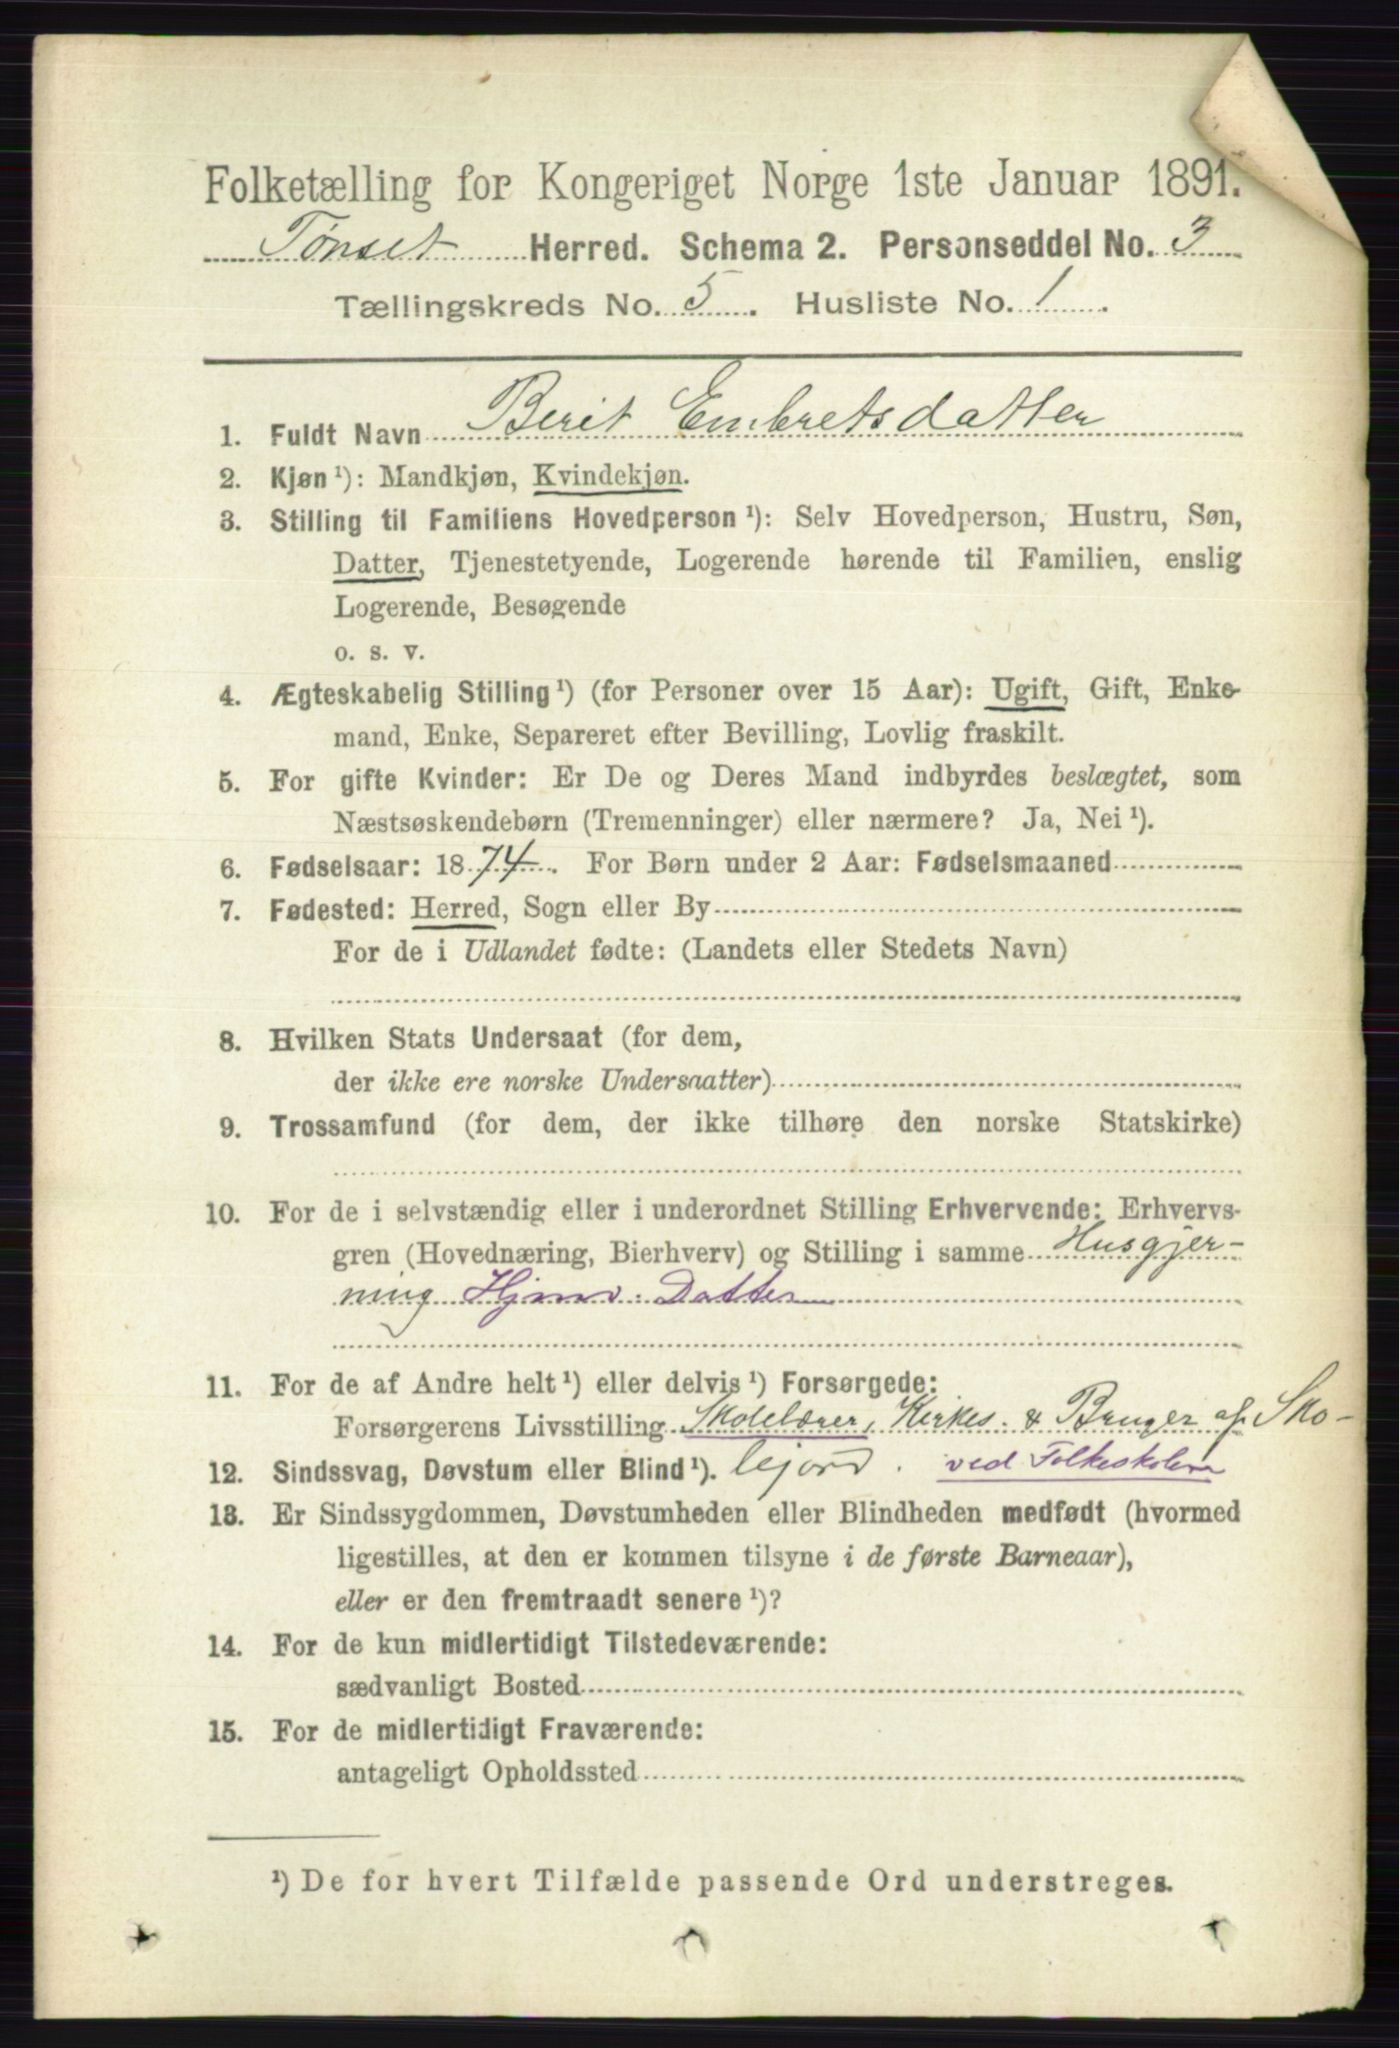 Folketælling for Kongeriget Norge 1ste Januar 1891.
Tønset Herred. Schema 2. Personseddel No. 3
Tællingskreds No. 5. Husliste No. 1.
1. Fuldt Navn Berit Embretsdatter
2. Kjøn ¹): Mandkjøn, Kvindekjøn.
3. Stilling til Familiens Hovedperson ¹): Selv Hovedperson, Hustru, Søn,
Datter, Tjenestetyende, Logerende hørende til Familien, enslig
Logerende, Besøgende
o. s. v.
4. Ægteskabelig Stilling ¹) (for Personer over 15 Aar): Ugift, Gift, Enke-
mand, Enke, Separeret efter Bevilling, Lovlig fraskilt.
5. For gifte Kvinder: Er De og Deres Mand indbyrdes beslægtet, som
Næstsøskendebørn (Tremenninger) eller nærmere? Ja, Nei ¹).
6. Fødselsaar: 1874. For Børn under 2 Aar: Fødselsmaaned
7. Fødested: Herred, Sogn eller By
For de i Udlandet fødte: (Landets eller Stedets Navn)
8. Hvilken Stats Undersaat (for dem,
der ikke ere norske Undersaatter)
9. Trossamfund (for dem, der ikke tilhøre den norske Statskirke)
10. For de i selvstændig eller i underordnet Stilling Erhvervende: Erhvervs-
gren (Hovednæring, Bierhverv) og Stilling i samme Husgjer-
ning Datter
11. For de af Andre helt ¹) eller delvis ¹) Forsørgede:
Forsørgerens Livsstilling Skolelærer, Kirkes. & Bruger af Sko-
12. Sindssvag, Døvstum eller Blind ¹). lejord. ved Folkeskolen
13. Er Sindssygdommen, Døvstumheden eller Blindheden medfødt (hvormed
ligestilles, at den er kommen tilsyne i de første Barneaar),
eller er den fremtraadt senere ¹)?
14. For de kun midlertidigt Tilstedeværende:
sædvanligt Bosted
15. For de midlertidigt Fraværende:
antageligt Opholdssted
¹) De for hvert Tilfælde passende Ord understreges.